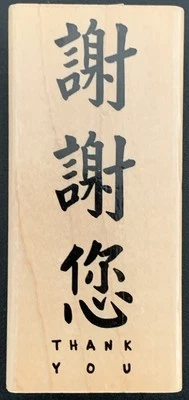 謝謝您
THANK
YOU